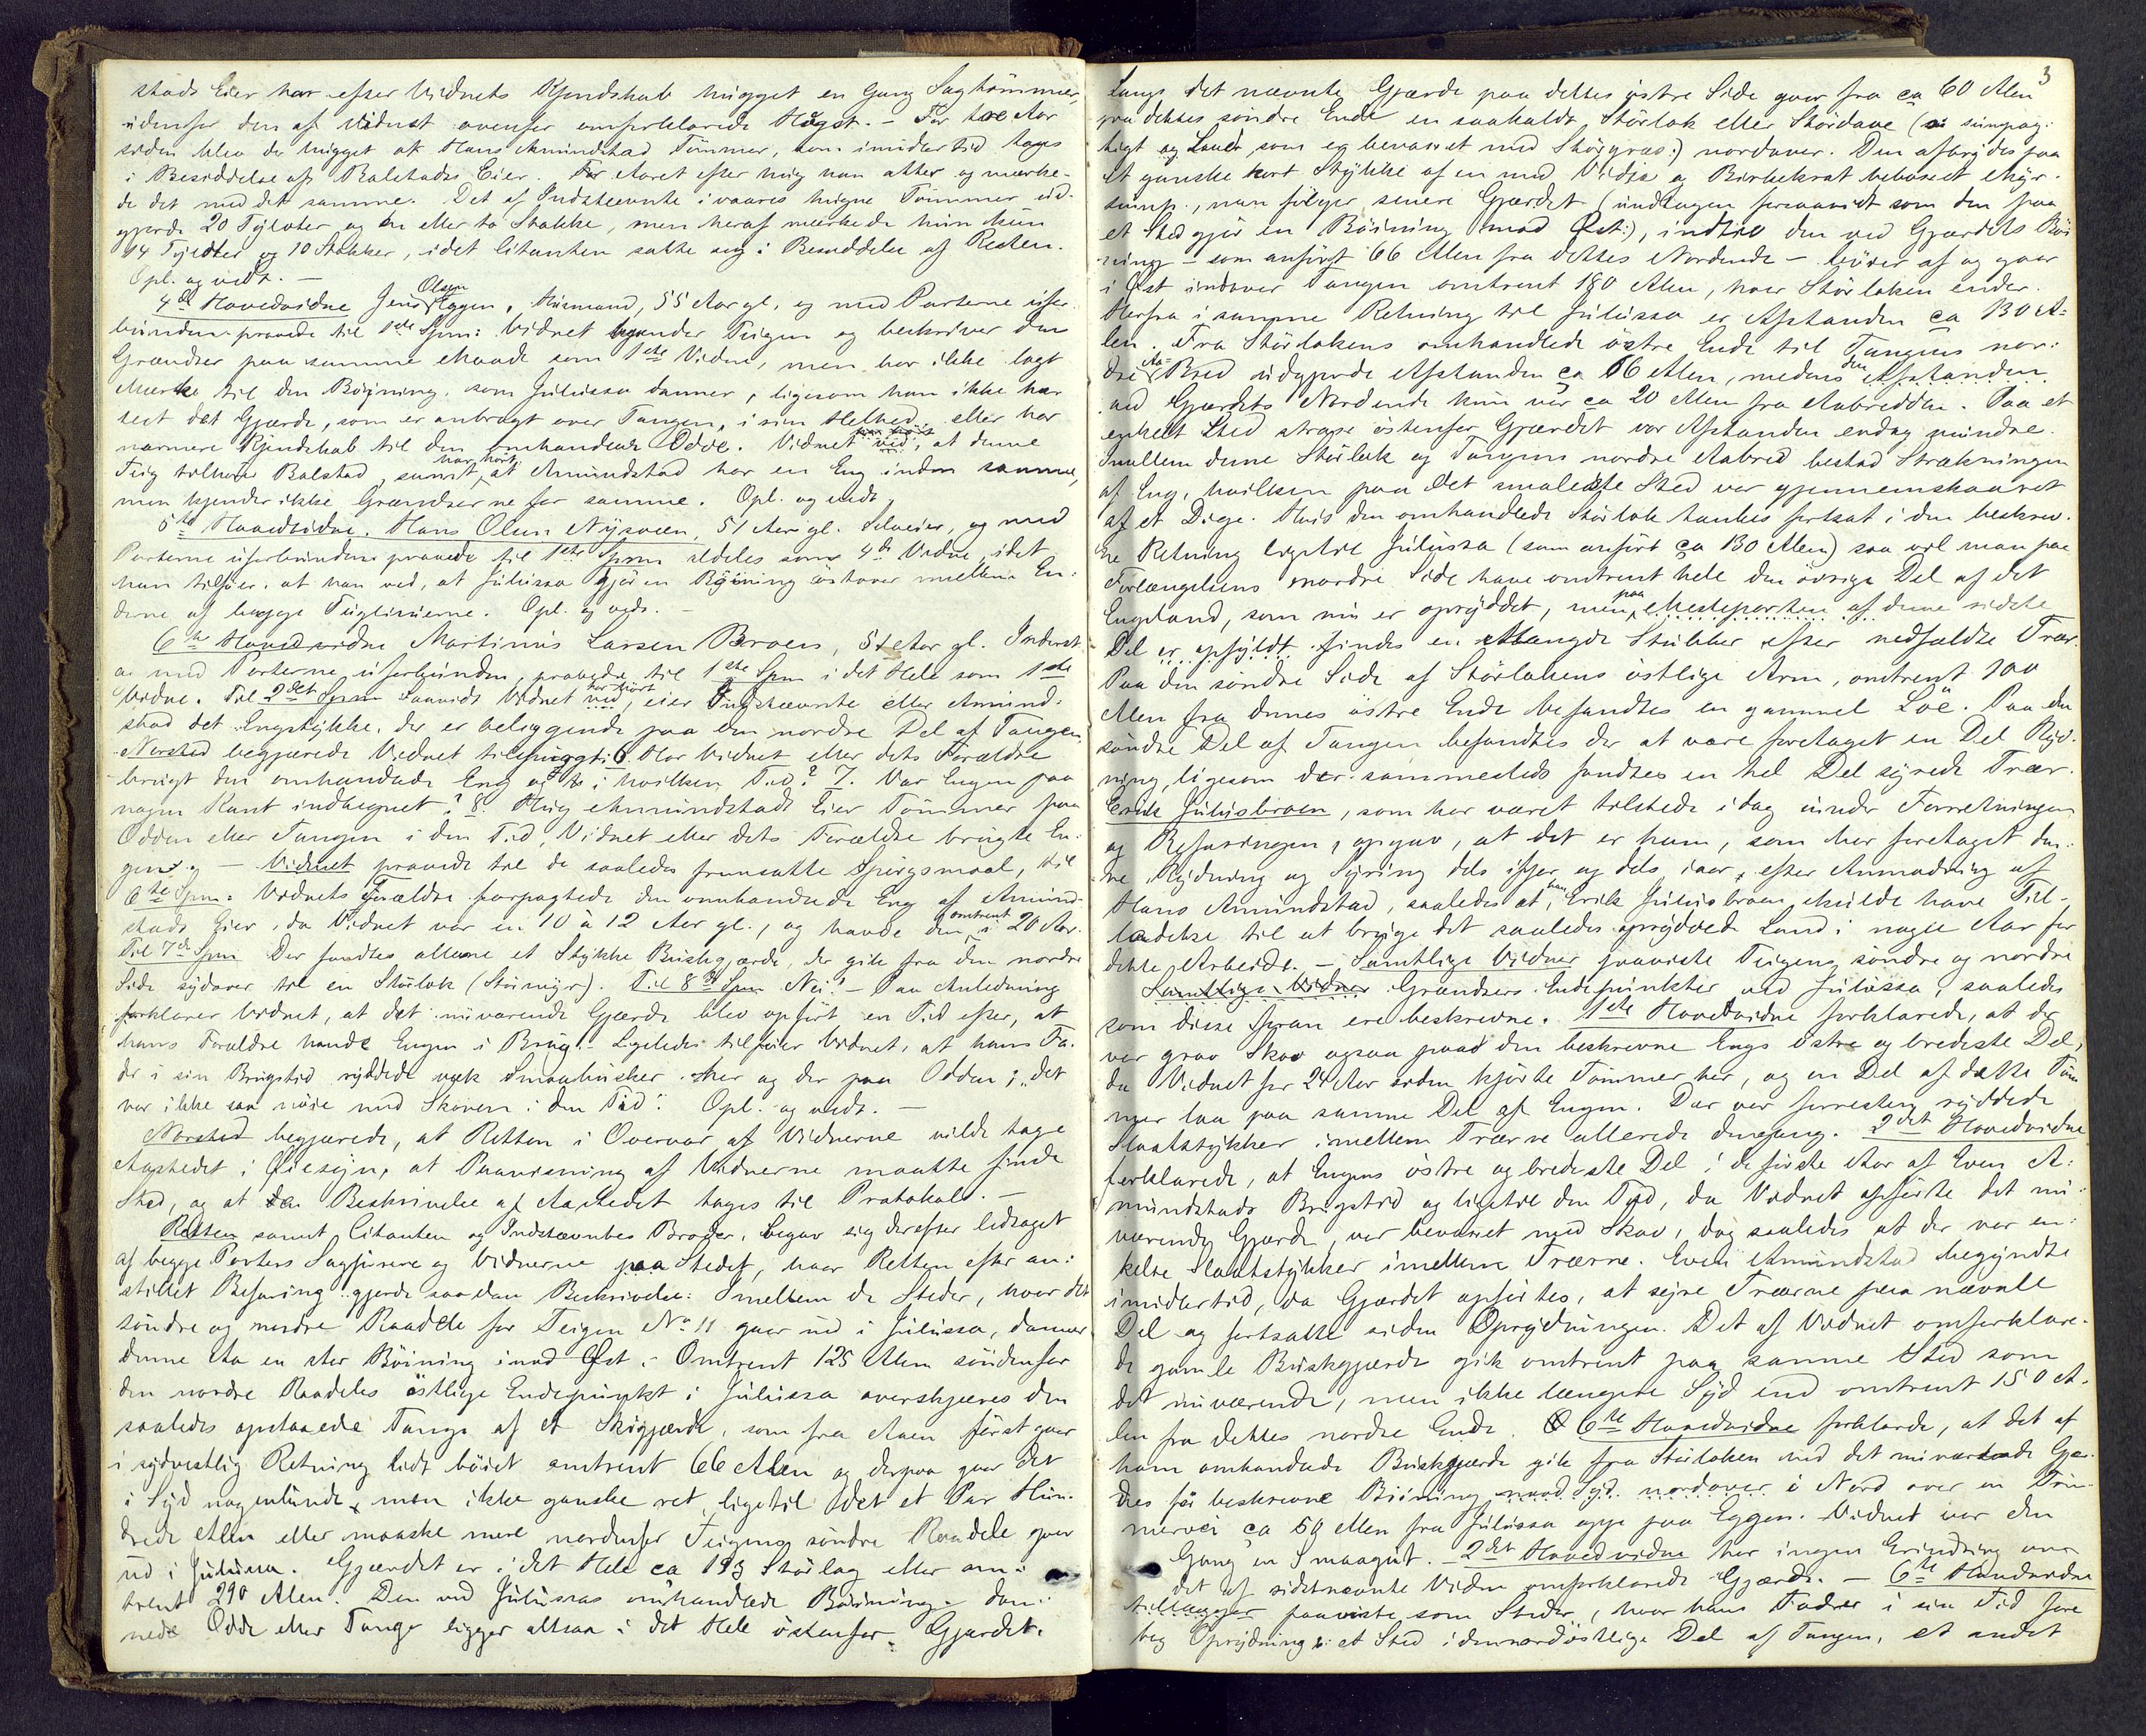 stads Eier har efter Vidnets Kjendskab hugget en Gang Sagtømmer,
udenfor den af Vidnet ovenfor omforklarede Hugst. – For toe Aar
siden blev der hugget af Hans Amundstad Tømmer, som imidlertid toges
i Besiddelse af Balstads Eier. Før Aaret efter hug han atter og mærke-
de det med det samme. Det af Indstevnte ivaares hugne Tømmer ud-
gjorde 20 Tylvter og en eller to Stokke, men heraf mærkede hun kun
14 Tylvter og 10 Stokker, idet Citanten satte sig i Besiddelse af Resten.
Opl. og vedt. –
4de Hovedvidne Jens Olsen Eggen, Husmand, 55 Aar gl. og med Parterne ufor-
bunden provede til 1ste Spm: Vidnet kjender Teigen og beskriver dens
Grændser paa samme Maade som 1ste Vidne, men har ikke lagt
Mærke til den Bøjning, som Julussa danner, ligesom han ikke har
seet det Gjærde, som er anbragt over Tangen, i sin Helhed eller har
nærmere Kjendskab til den omhandlede Odde. Vidnet ved, at denne
Teig tilhører Balstad, samt har hørt, at Amundstad har en Eng inden samme,
men kjender ikke Grændserne for samme. Opl. og vedt.
5te Hovedvidne. Hans Olsen Nysveen, 51 Aar gl. Selveier, og med
Parterne uforbunden provede til 1ste Spm aldeles som 4de Vidne, idet
han tilføier, at han ved, at Julussa gjør en Bøining østover mellem En-
derne af begge Teiglinierne. Opl. og vedt. –
6te Hovedvidne Martinus Larsen Broen, 51 Aar gl. Inderst
og med Parterne uforbunden, provede til 1ste Spm i det Hele som 1ste
Vidne. Til 2det Spm Saavidt Vidnet har hørt ved, eier Indstævnte eller Amund-
stad det Engstykke, der er beliggende paa den nordre Del af Tangen.
Norstad begjærede Vidnet tilspurgt: 6. Har Vidnet eller dets Forældre
brugt den omhandlede Eng og i hvilken Tid? 7. Var Engen paa
nogen Kant indhegnet? 8. Hug Amundstads Eier Tømmer paa
Odden eller Tangen i den Tid, Vidnet eller dets Forældre brugte En-
gen? – Vidnet provede til de saaledes fremsatte Spørgsmaal, til
6te Spm: Vidnets Forældre forpagtede den omhandlede Eng af Amund-
stads Eier, da Vidnet var en 10 à 12 Aar gl., og havde den i omtrent 20 Aar.
Til 7de Spm Der fandtes allene et Stykke Buskgjærde, der gik fra den nordre
Side sydover til en Størlok (Størmyr). Til 8de Spm Nei! – Paa Anledning
forklarer Vidnet, at det nuværende Gjærde blev opført en Tid efter, at
hans Forældre havde Engen i Brug. Ligeledes tilføier Vidnet, at hans Fa-
der i sin Brugstid ryddede væk Smaabusker her og der paa Odden; „det
var ikke saa nøie med Skoven i den Tid". Opl. og vedt. –
Norstad begjærede, at Retten i Overvær af Vidnerne vilde tage
Aastedet i Øiesyn, at Paavisning af Vidnerne maatte finde
Sted, og at en Beskrivelse af Aastedet toges til Protokols. –
Retten samt Citanten og Indstævntes Broder, begav sig derefter ledsaget
af begge Parters Sagførere og Vidnerne paa Stedet, hvor Retten efter an-
stillet Befaring gjorde saadan Beskrivelse: Imellem de Steder, hvor det
søndre og nordre Raadele for Teigen No 11 gaar ud i Julussa, danner
denne Aa en stor Bøining imod Øst. – Omtrent 125 Alen søndenfor
den nordre Raadeles østlige Endepunkt i Julussa overskjæres den
saaledes opstaaede Tange af et Skigjærde, som fra Aaen først gaar
i sydvestlig Retning lidt bøiet omtrent 66 Alen og derpaa gaar det
i Syd nogenlunde, men ikke ganske ret, ligetil det et Par Hun-
drede Alen eller maaske mere nordenfor Teigens søndre Raadele gaar
ud i Julussa. Gjærdet er i det Hele ca 193 Størlag eller om-
trent 290 Alen. Den ved Julussas omhandlede Bøining dan-
nede Odde eller Tange ligger altsaa i det Hele østenfor Gjærdet.
3
Langs det nævnte Gjærde paa dettes østre Side gaar fra ca 60 Alen
fra dettes søndre Ende en saakaldt Størlok eller Stördave (et sumpag-
tigt og Lændt, som er bevoxet med Størgræs:) nordover. Den afbrydes paa
et ganske kort Stykke af en med Vidje og Birkekrat bevoxet Myr-
sump, men følger senere Gjærdet (undtagen forsaavidt som den paa
et Sted gjør en Bøining mod Øst:), indtil den ved Gjærdets Bøi-
ning – som anført 66 Alen fra dettes Nordende – bøier af og gaar
i Øst indover Tangen omtrent 180 Alen, hvor Størloken ender.
Herfra i samme Retning til Julussa er Afstanden ca 130 A-
len. Fra Størlokens omhandlede østre Ende til Tangens nor-
dre Aa-Bred udgjorde Afstanden ca 66 Alen, medens den Afstanden
ved Gjærdets Nordende kun var ca 20 Alen fra Aabredden. Paa et
enkelt Sted strax østenfor Gjærdet var Afstanden endog mindre.
Imellem denne Størlok og Tangens nordre Aabred bestod Strækningen
af Eng, hvilken paa det smaleste Sted var gjennemskaaret
af et Dige. Hvis den omhandlede Størlok tænkes fortsat i den beskrev-
ne Retning ligetil Julussa (som anført ca 130 Alen) saa vil man paa
Forlængelsens nordre Side have omtrent hele den øvrige Del af det
Engeland, som nu er opryddet, men paa Mesteparten af denne sidste
Del er opfyldt findes en Mængde Stubber efter nedfældte Trær.
Paa den søndre Side af Størlokens østlige Arm, omtrent 100
Alen fra dennes østre Ende befandtes en gammel Løe. Paa den
søndre Del af Tangen befandtes der at være foretaget en Del Ryd-
ning, ligesom der sammesteds fandtes en hel Del syrede Trær.
Erik Julusbroen, som har været tilstede idag under Forretningen
og Befaringen, opgav, at det er ham, som har foretaget den-
ne Rydning og Syring dels ifjor og dels iaar, efter Anmodning af
Hans Amundstad, saaledes at han, Erik Julusbroen skulde have Til-
ladelse til at bruge det saaledes opryddede Land i nogle Aar for
dette Arbeide. – Samtlige Vidner paaviste Teigens søndre og nordre
Samtlige Vidner Grændsers Endepunkter ved Julussa, saaledes
som disse foran ere beskrevne. 1ste Hovedvidne forklarede, at der
var grov Skov ogsaa paa den beskrevne Engs østre og bredeste Del,
da Vidnet for 24 Aar siden kjørte Tømmer her, og en Del af dette Tøm-
mer laa paa samme Del af Engen. Der var forresten ryddede
Slaatstykker imellem Trærne allerede dengang. 2det Hovedvidne
forklarede, at Engens østre og bredeste Del i de første Aar af Even A-
mundstads Brugstid og ligetil den Tid, da Vidnet opførte det nu-
værende Gjærde, var bevoxet med Skov, dog saaledes at der var en-
kelte Slaatstykker imellem Trærne. Even Amundstad begyndte
imidlertid, da Gjærdet opførtes, at syre Trærne paa nævnte
Del og fortsatte siden Oprydningen. Det af Vidnet omforklare-
de gamle Buskgjærde gik omtrent paa samme Sted som
det nuværende, men ikke længere Syd end omtrent 150 A-
len fra dettes nordre Ende. 6te Hovedvidne forklarede, at det af
ham omhandlede Buskgjærde gik fra Størloken ved det nuværende Gjær-
des før beskrevne Bøining mod Syd nordover i Nord over en Tøm-
mervei ca 50 Alen fra Julussa oppe paa Eggen. Vidnet var den
Gang en Smaagut. – 2det Hovedvidne har ingen Erindring om
det af sidstnævnte Vidne omforklarede Gjærde. – 6te Hovedvidne
tillægger paaviste som Steder, hvor hans Fader i sin Tid fore-
tog Oprydning: et Sted i den nordøstlige Del af Tangen, et andet